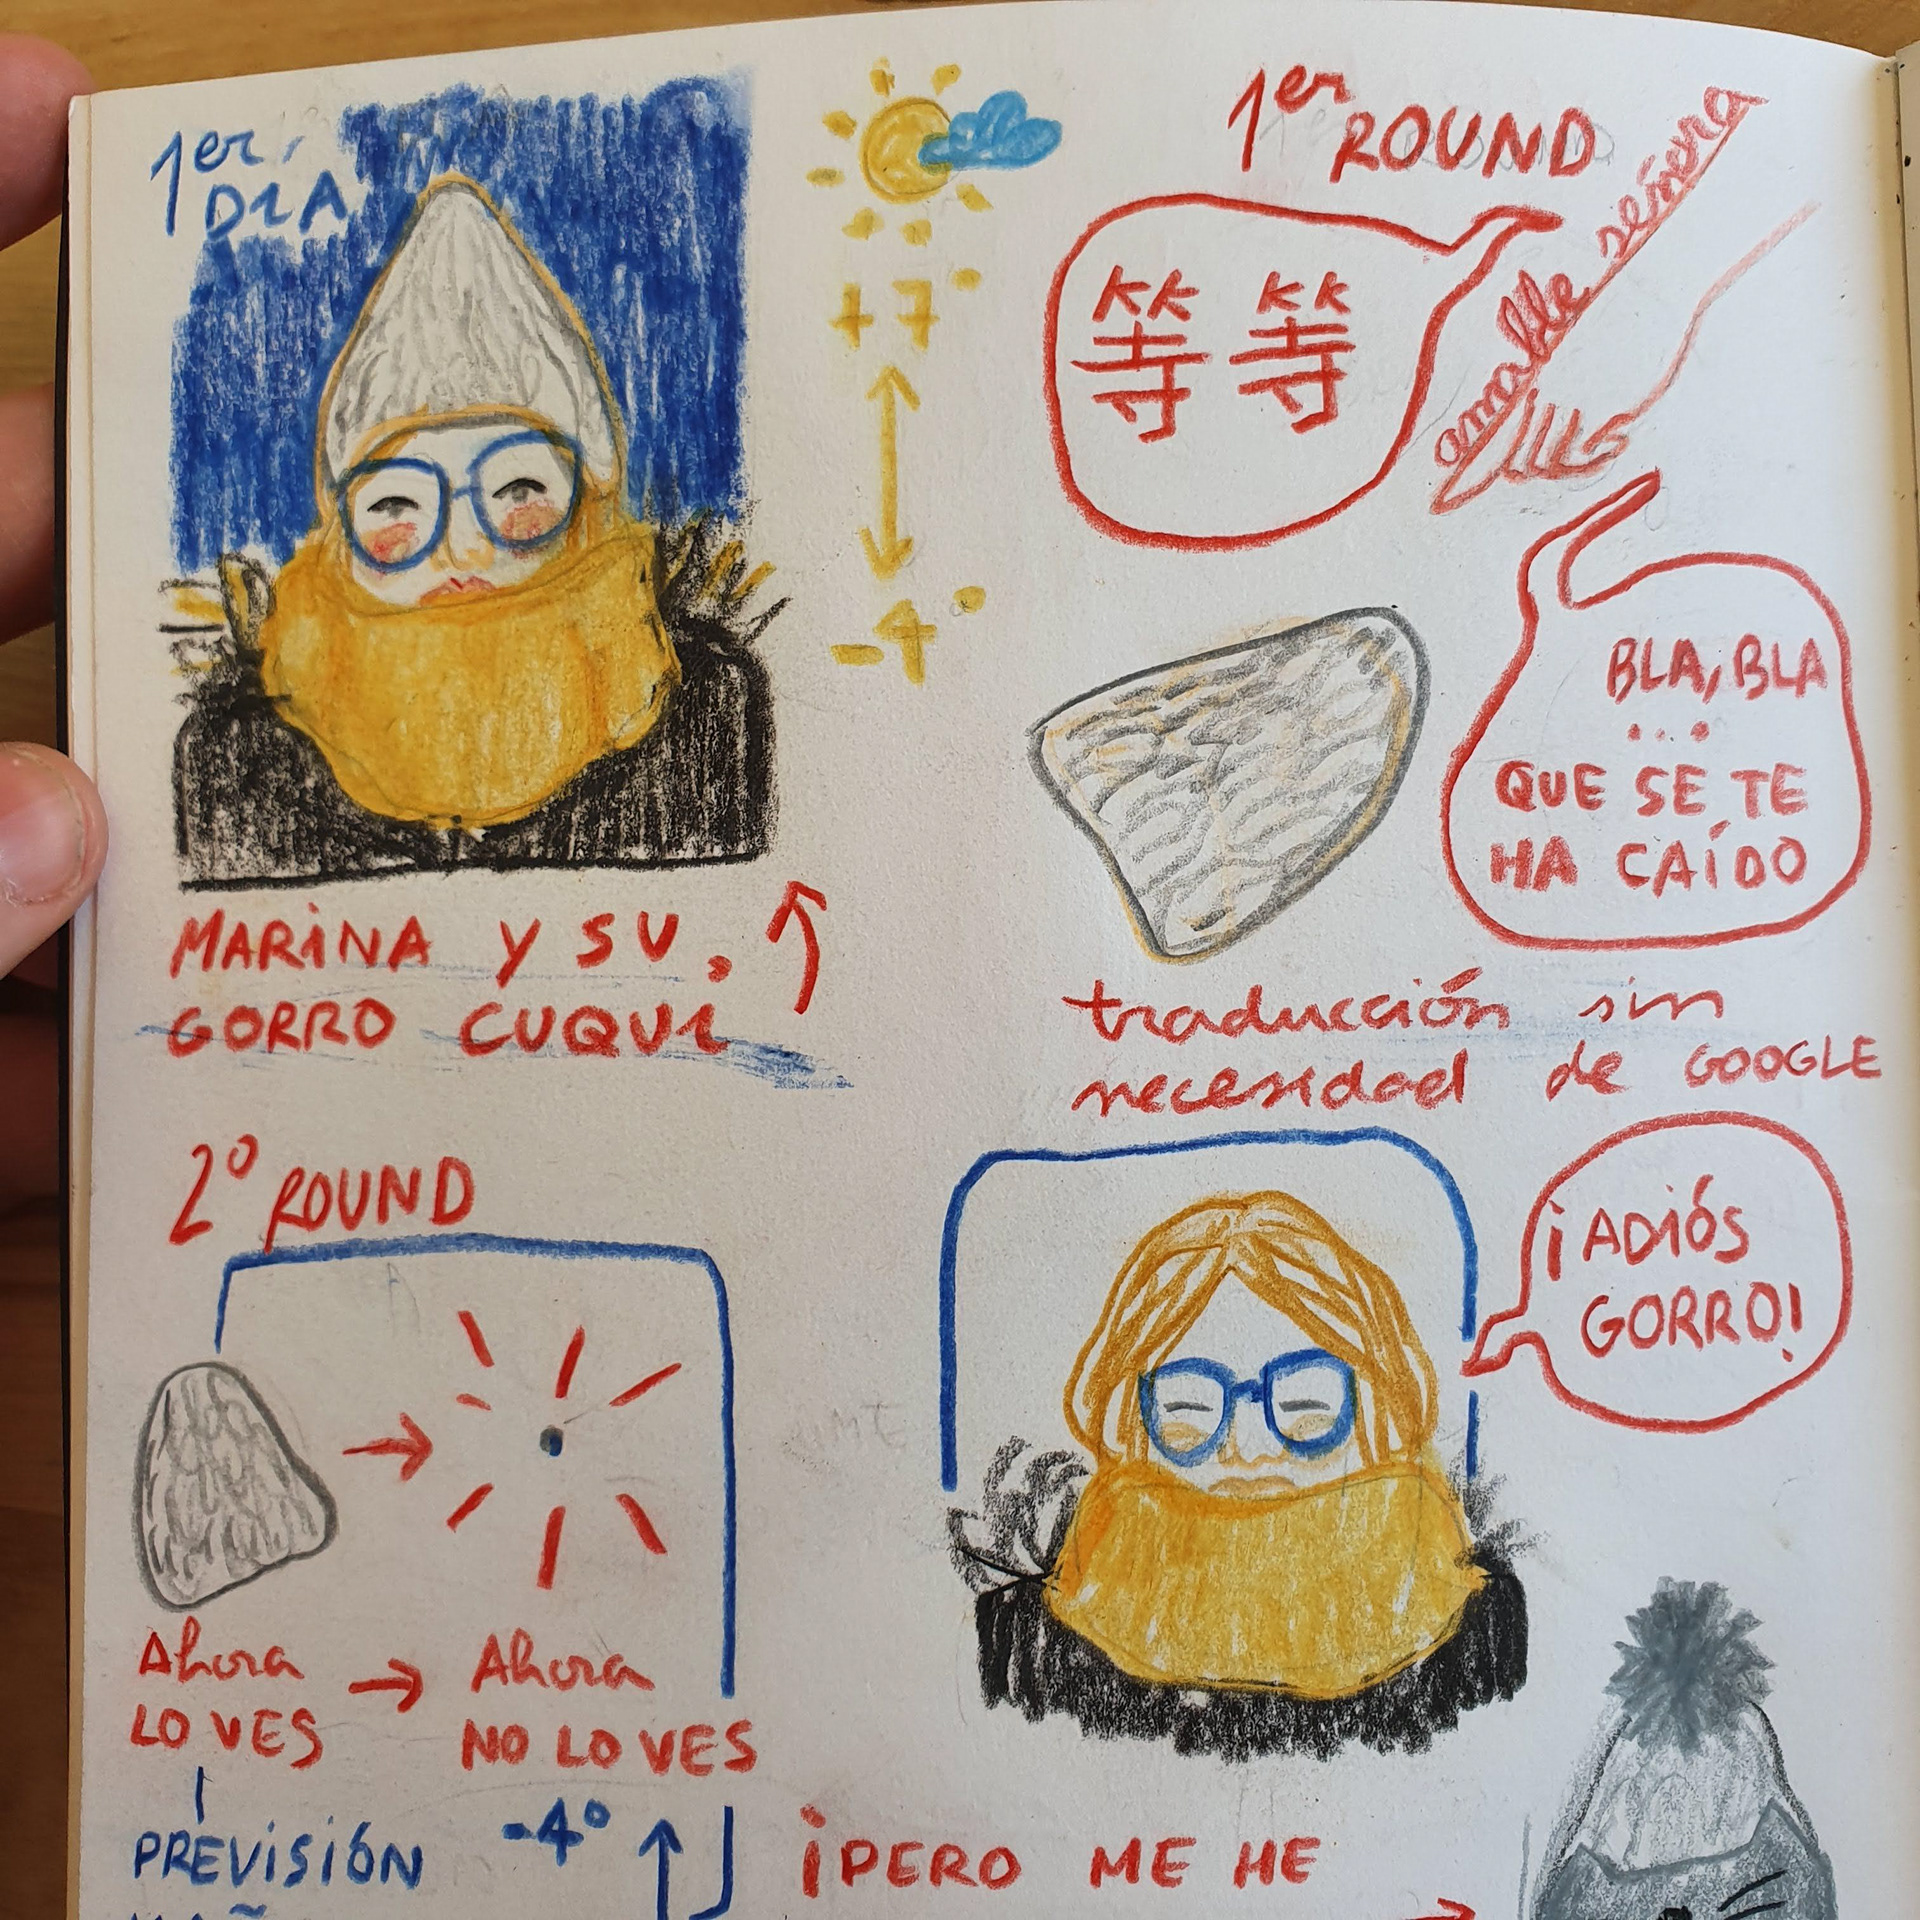 1er DIA
+7°
-4°
MARINA Y SU
GORRO CUQUI
1er ROUND
等等
amable señora
BLA, BLA
...
QUE SE TE
HA CAÍDO
traducción sin
necesidad de GOOGLE
2º ROUND
Ahora
LO VES
Ahora
NO LO VES
¡ADIÓS
GORRO!
PREVISIÓN
-4º
¡PERO ME HE